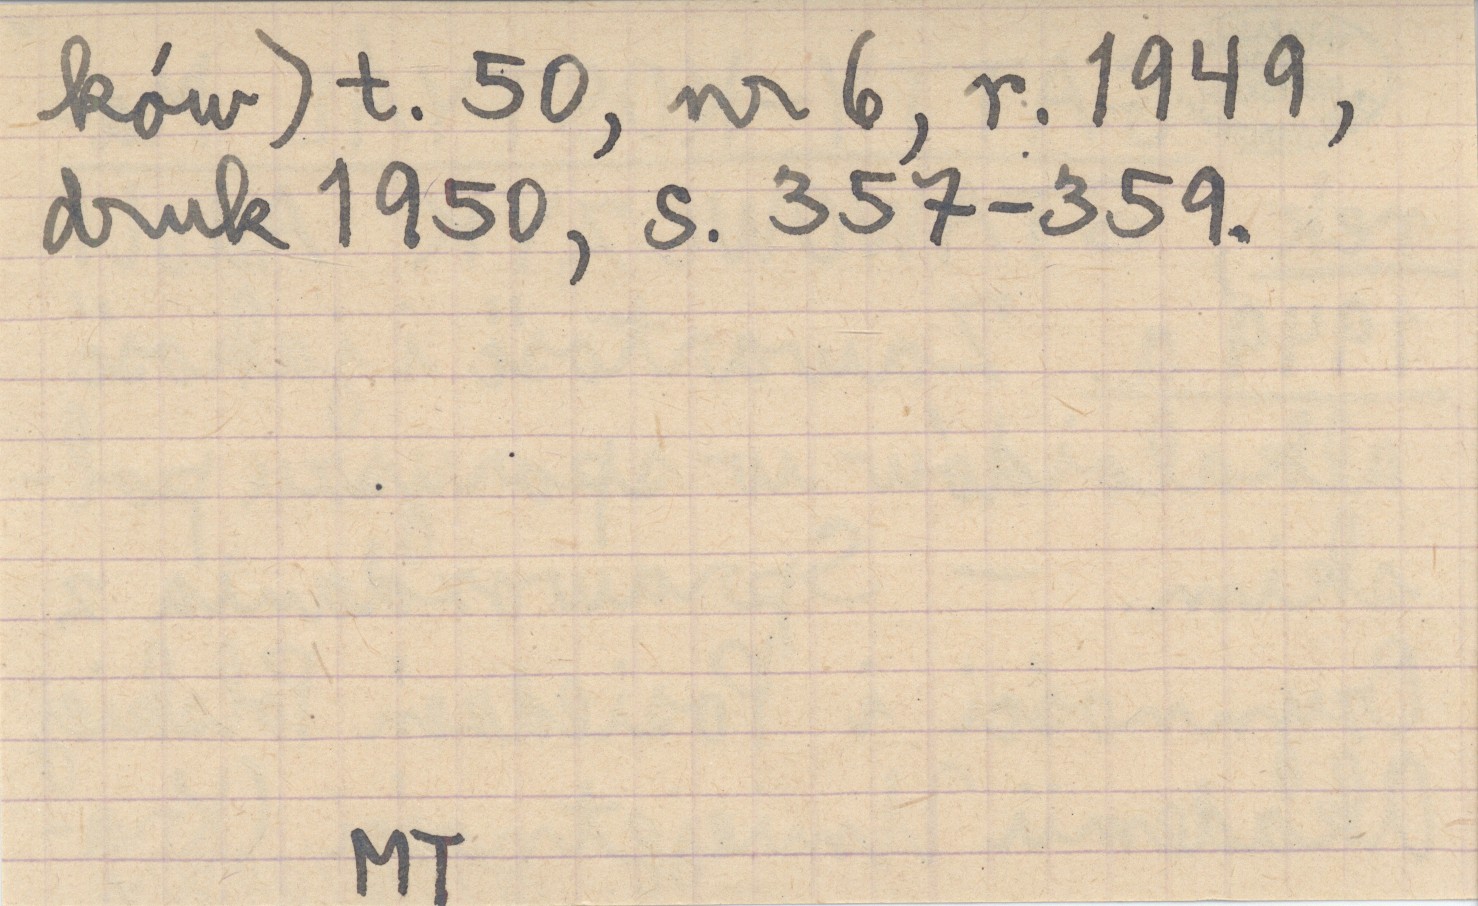 ków) t. 50, nr 6, r. 1949,
druk 1950, s. 357-359.
MT